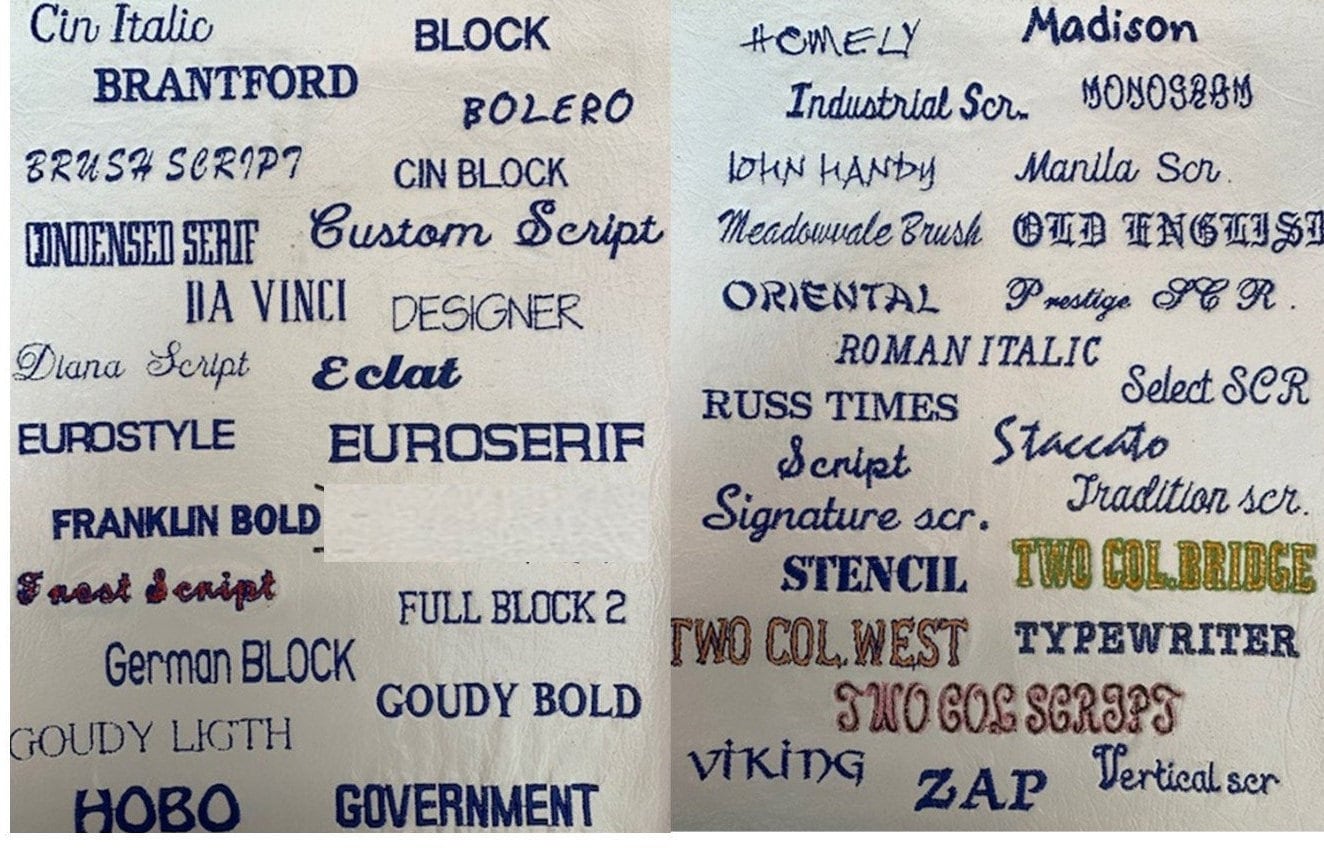 Cin Italic
BLOCK
BRANTFORD
BOLERO
BRUSH SCRIPT
CIN BLOCK
CONDENSED SERIF
Custom Script
DA VINCI
DESIGNER
Diana Script
Eclat
EUROSTYLE
EUROSERIF
FRANKLIN BOLD
Frest Script
FULL BLOCK 2
German BLOCK
GOUDY BOLD
GOUDY LIGTH
HOBO
GOVERNMENT
HOMELY
Madison
Industrial Scr.
MONOGRAM
JOHN HANDY
Manila Scr.
Meadowvale Brush
OLD ENGLISH
ORIENTAL
Prestige SCR.
ROMAN ITALIC
Select SCR
RUSS TIMES
Staccato
Script
Tradition scr.
Signature scr.
STENCIL
TWO COL.BRIDGE
TWO COL.WEST
TYPEWRITER
TWO COL SCRIPT
VIKING
ZAP
Vertical scr